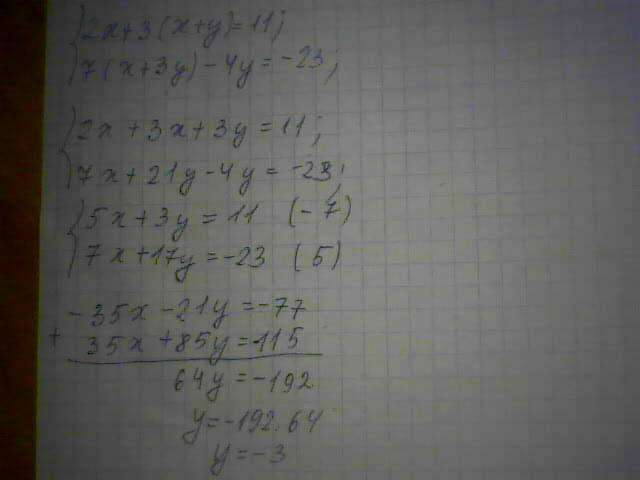 2x+3(x+y)=11;
7(x+3y)-4y=-23;
2x+3x+3y=11;
7x+21y-4y=-23;
5x+3y=11 (-7)
7x+17y=-23 (5)
-35x-21y=-77
+ 35x+85y=-115
64y=-192
y=-192:64
y=-3